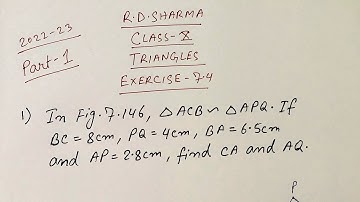 2022-23
Part-1
R.D.SHARMA
CLASS-X
TRIANGLES
EXERCISE-7.4
1) In Fig.7.146, △ACB ∽ △APQ. If
BC = 8cm, PQ = 4cm, BA = 6.5cm
and AP = 2.8cm, find CA and AQ.
P